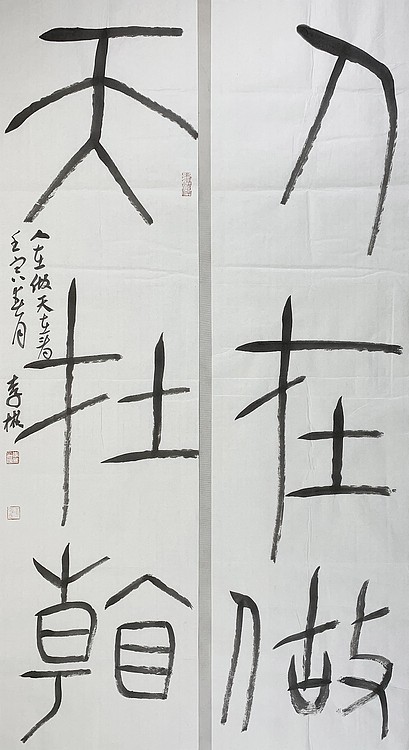 人在做
天在看
人在做天在看
壬寅月
李